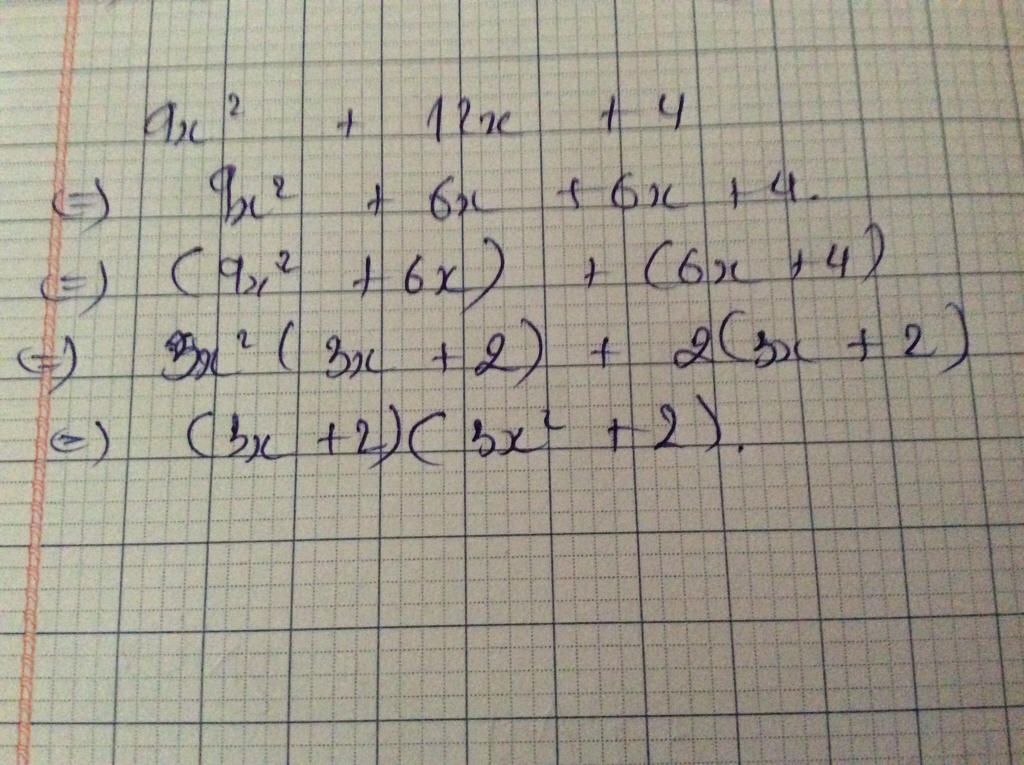 9x² + 12x + 4
⇔ 9x² + 6x + 6x + 4.
⇔ (9x² + 6x) + (6x + 4)
⇔ 3x² (3x + 2) + 2(3x + 2)
⇔ (3x + 2)(3x² + 2).